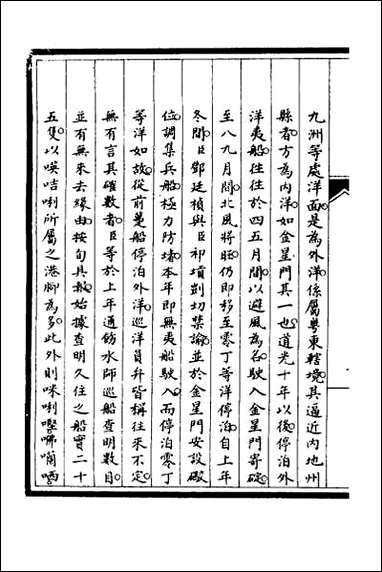 九洲等處洋面是為外洋係屬粵東轄境其逼近內地州
縣者方為內洋如金星門其一也道光十年以後停泊外
洋夷船往往於四五月間以避風為名駛入金星門寄碇
至八九月間北風將旺仍即移至零丁等洋停泊自上年
冬間臣鄧廷楨與臣祁𡎴剴切禁諭並於金星門安設礮
位調集兵船極力防堵本年即無夷船駛入而停泊零丁
等洋如故從前躉船停泊外洋巡洋員弁皆稱往來不定
無有言其確數者臣等於上年通飭水師巡船查明數目
並有無來去緣由按旬具報始據查明久住之船實二十
五隻以𠸄咭唎所屬之港腳為多此外則咪唎㗰咈囒哂